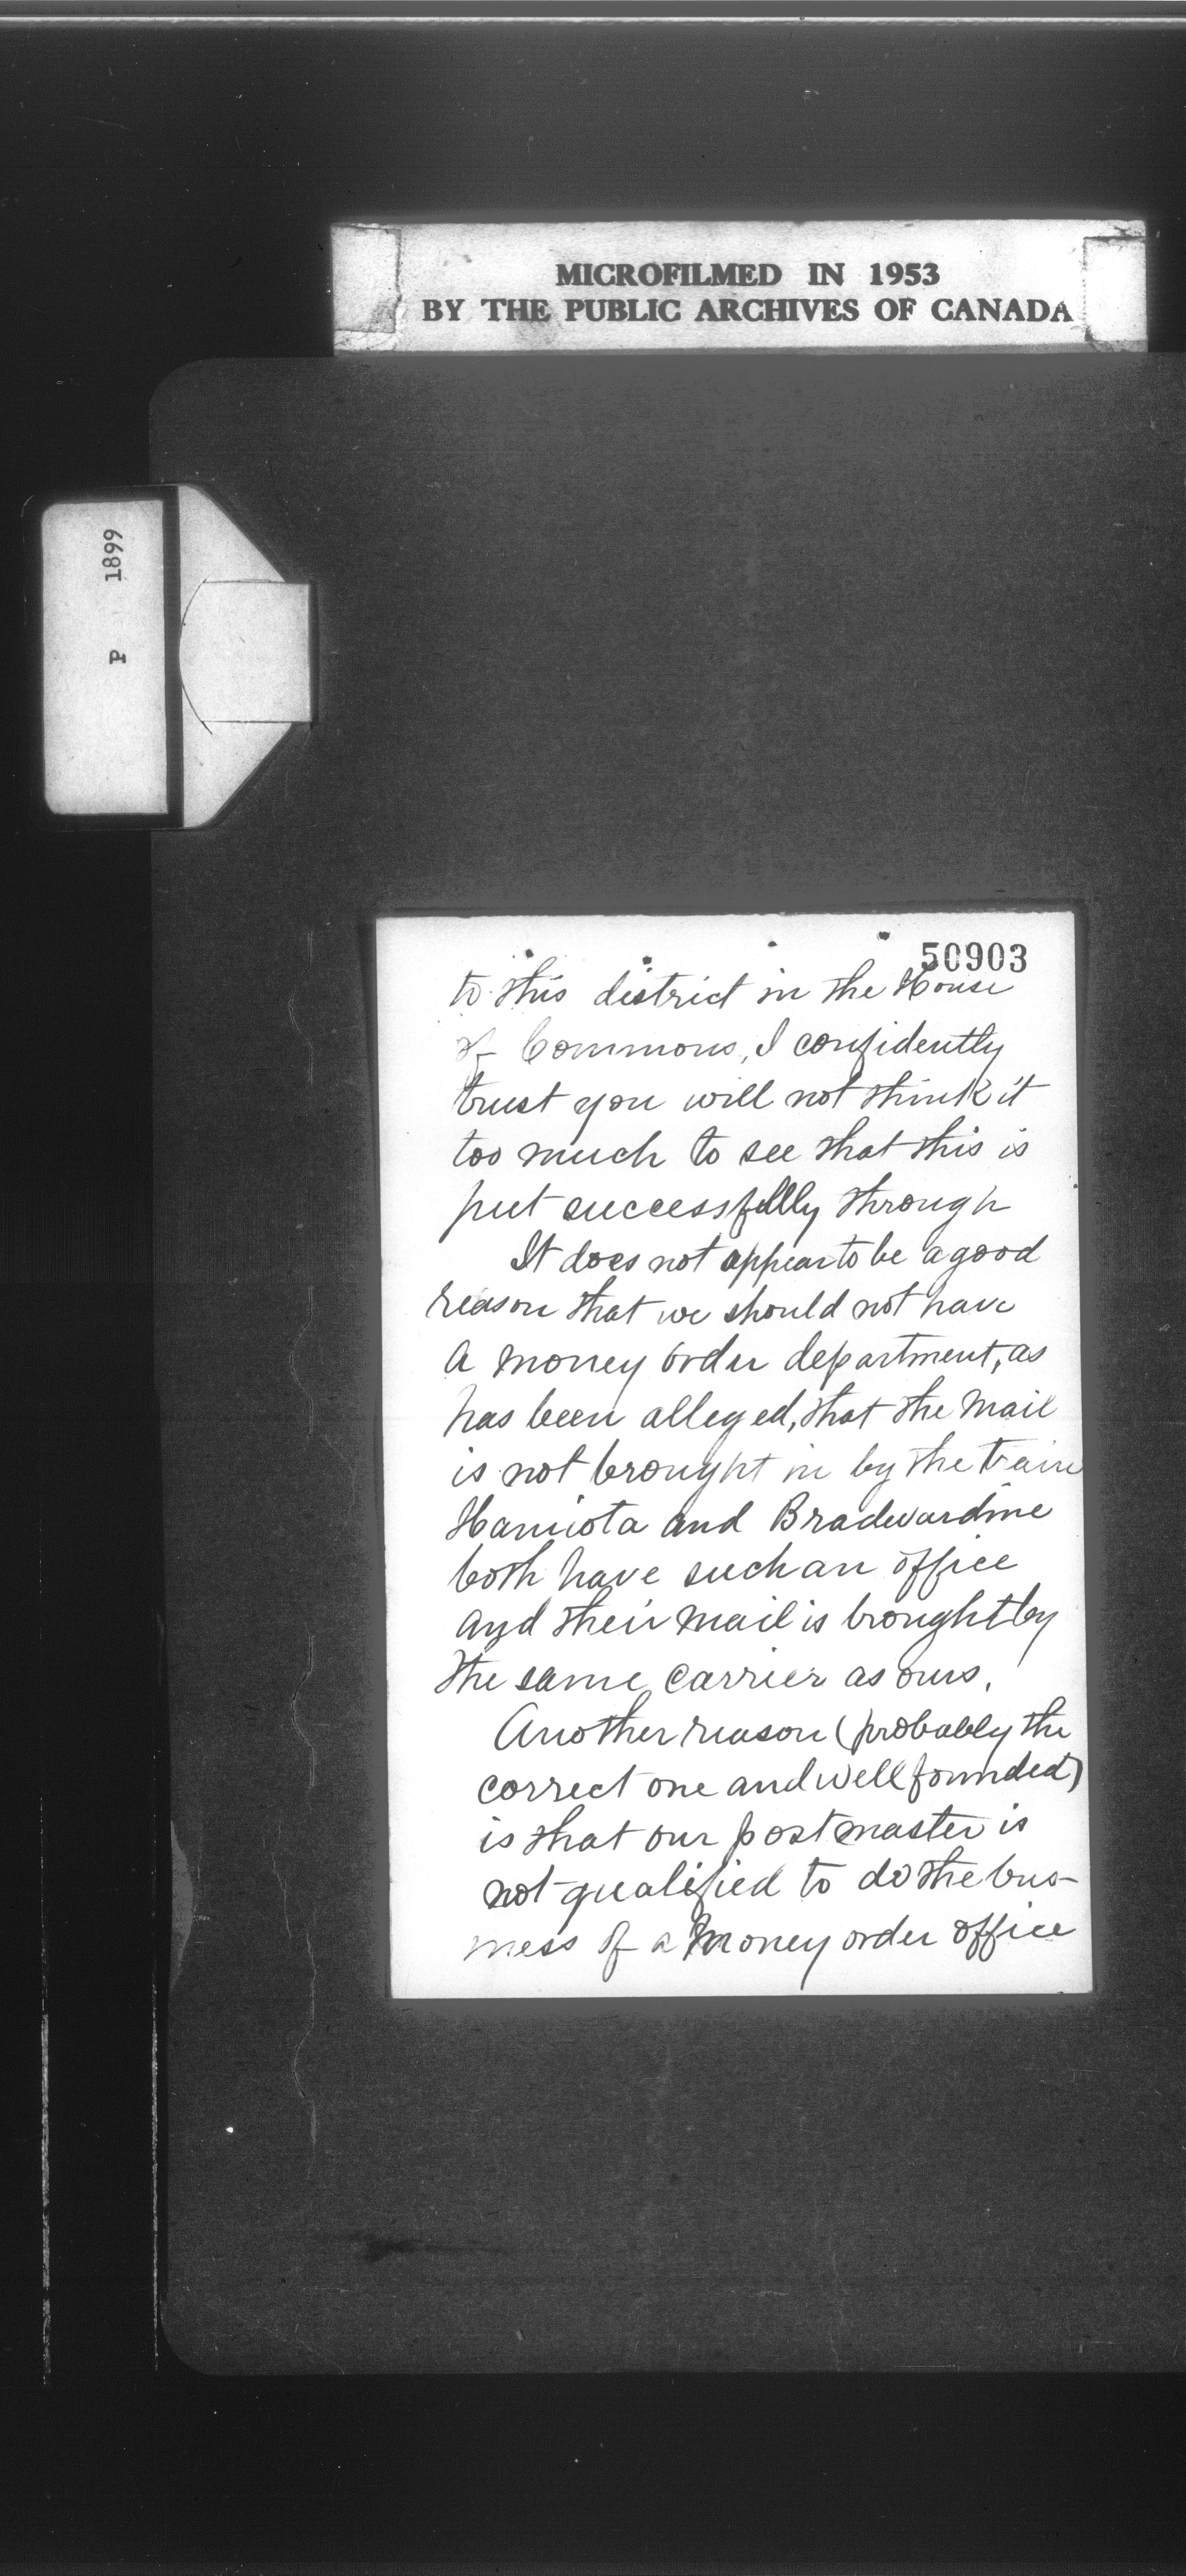 MICROFILMED IN 1953
BY THE PUBLIC ARCHIVES OF CANADA
P 1899
50903
to this district in the House
of Commons, I confidently
trust you will not think it
too much to see that this is
put successfully through
It does not appear to be a good
reason that we should not have
a money order department, as
has been alleged, that the mail
is not brought in by the train
Hamiota and Bradwardine
both have such an office
and their mail is brought by
the same carrier as ours.
Another reason (probably the
correct one and well founded)
is that our postmaster is
not qualified to do the bus-
iness of a money order office